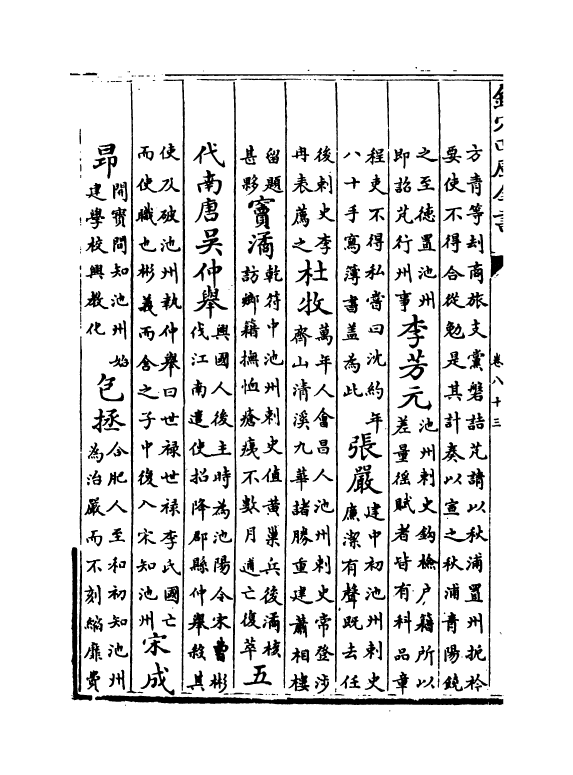 欽定四庫全書
卷八十三
方清等刦商旅支黨盤詰芃請以秋浦置州扼衿
要使不得合從勉是其計奏以宣之秋浦青陽饒
之至德置池州
即詔芃行州事李芳元池州刺史鈎檢户籍所以
差量徭賦者皆有科品章
程吏不得私嘗曰沈約年
八十手寫薄書蓋為此張嚴建中初池州刺史
廉潔有聲既去任
後刺史李
冉表薦之杜牧萬年人會昌人池州刺史常登涉
齊山清溪九華諸勝重建蕭相樓
留題
甚夥竇潏乾符中池州刺史值黃巢兵後潏核
訪鄉籍撫恤瘡痍不數月逋亡復萃五
代南唐吳仲舉興國人後主時為池陽令宋曹彬
伐江南遣使招降郡縣仲舉殺其
使及破池州執仲舉曰世禄世禄李氏國亡
而使職也彬義而舍之子中復入宋知池州宋成
昂開寶間知池州始
建學校興教化包拯合肥人至和初知池州
為治嚴而不刻縮靡費